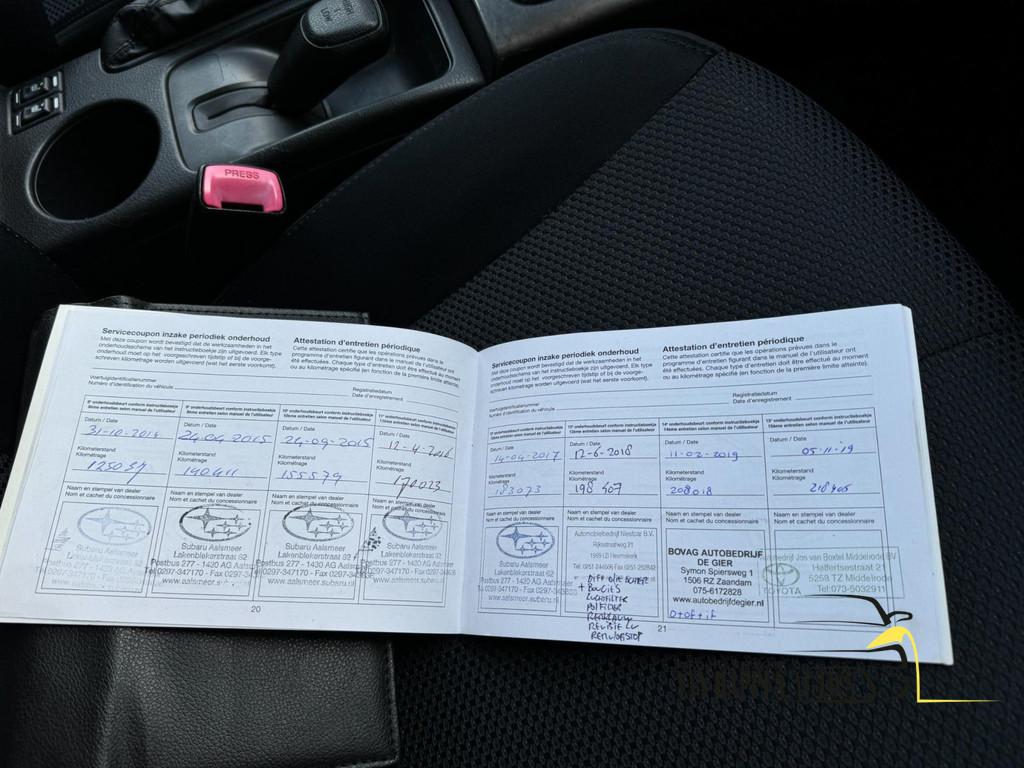 LOW
PRESS
Servicecoupon inzake periodiek onderhoud
Met deze coupon wordt bevestigd dat de werkzaamheden in het
onderhoudsschema van het instructieboekje zijn uitgevoerd. Elk type
onderhoud moet op het voorgeschreven tijdstip of bij de voorge-
schreven kilometrage worden uitgevoerd (wat het eerste voorkomt).
Attestation d'entretien périodique
Cette attestation certifie que les opérations prévues dans le
programme d'entretien figurant dans le manuel de l'utilisateur ont
été effectuées. Chaque type d'entretien doit être effectué au moment
ou au kilométrage spécifié (en fonction de la première limite atteinte).
Voertuigidentificatienummer
Numéro d'identification du véhicule
Registratiedatum
Date d'enregistrement
8e onderhoudsbeurt conform instructieboekje
8ème entretien selon manuel de l'utilisateur
9e onderhoudsbeurt conform instructieboekje
9ème entretien selon manuel de l'utilisateur
10e onderhoudsbeurt conform instructieboekje
10ème entretien selon manuel de l'utilisateur
11e onderhoudsbeurt conform instructieboekje
11ème entretien selon manuel de l'utilisateur
Datum / Date
Datum / Date
Datum / Date
Datum / Date
24-04-2015
24-09-2015
Kilometerstand
Kilométrage
Kilometerstand
Kilométrage
Kilometerstand
Kilométrage
Kilometerstand
Kilométrage
155579
170023
Naam en stempel van dealer
Nom et cachet du concessionnaire
Naam en stempel van dealer
Nom et cachet du concessionnaire
Naam en stempel van dealer
Nom et cachet du concessionnaire
Naam en stempel van dealer
Nom et cachet du concessionnaire
Subaru Aalsmeer
Lakenblekerstraat 62
Postbus 277 - 1430 AG Aalsmeer
www.aalsmeer.subaru.nl
Subaru Aalsmeer
Lakenblekerstraat 62
Postbus 277 - 1430 AG Aalsmeer
Subaru Aalsmeer
Lakenblekerstraat 62
Postbus 277 - 1430 AG Aalsmeer
Subaru Aalsmeer
Lakenblekerstraat 62
20
Servicecoupon inzake periodiek onderhoud
Met deze coupon wordt bevestigd dat de werkzaamheden in het
onderhoudsschema van het instructieboekje zijn uitgevoerd. Elk type
onderhoud moet op het voorgeschreven tijdstip of bij de voorge-
schreven kilometrage worden uitgevoerd (wat het eerst voorkomt).
Attestation d'entretien périodique
Cette attestation certifie que les opérations prévues dans le
programme d'entretien figurant dans le manuel de l'utilisateur ont
été effectuées. Chaque type d'entretien doit être effectué au moment
ou au kilométrage spécifié (en fonction de la première limite atteinte).
Voertuigidentificatienummer
Numéro d'identification du véhicule
Registratiedatum
Date d'enregistrement
12e onderhoudsbeurt conform instructieboekje
12ème entretien selon manuel de l'utilisateur
13e onderhoudsbeurt conform instructieboekje
13ème entretien selon manuel de l'utilisateur
14e onderhoudsbeurt conform instructieboekje
14ème entretien selon manuel de l'utilisateur
15e onderhoudsbeurt conform instructieboekje
15ème entretien selon manuel de l'utilisateur
Datum / Date
Datum / Date
Datum / Date
Datum / Date
14-04-2017
12-6-2018
11-02-2019
05-11-19
Kilometerstand
Kilométrage
Kilometerstand
Kilométrage
Kilometerstand
Kilométrage
Kilometerstand
Kilométrage
183073
198 407
208018
218405
Naam en stempel van dealer
Nom et cachet du concessionnaire
Naam en stempel van dealer
Nom et cachet du concessionnaire
Naam en stempel van dealer
Nom et cachet du concessionnaire
Naam en stempel van dealer
Nom et cachet du concessionnaire
Subaru Aalsmeer
Lakenblekerstraat 62
Postbus 277 - 1430 AG
www.aalsmeer.subaru.nl
Automobielbedrijf Niestcar B.V.
Rijksstraatweg
Heemskerk
BOVAG AUTOBEDRIJF
DE GIER
Symon Spiersweg 1
1506 RZ Zaandam
075-6172828
www.autobedrijfdegier.nl
O+of+if
Jos van Boxtel Middelrode
5258 TZ Middelrode
Tel:073-5032911
TOYOTA
21